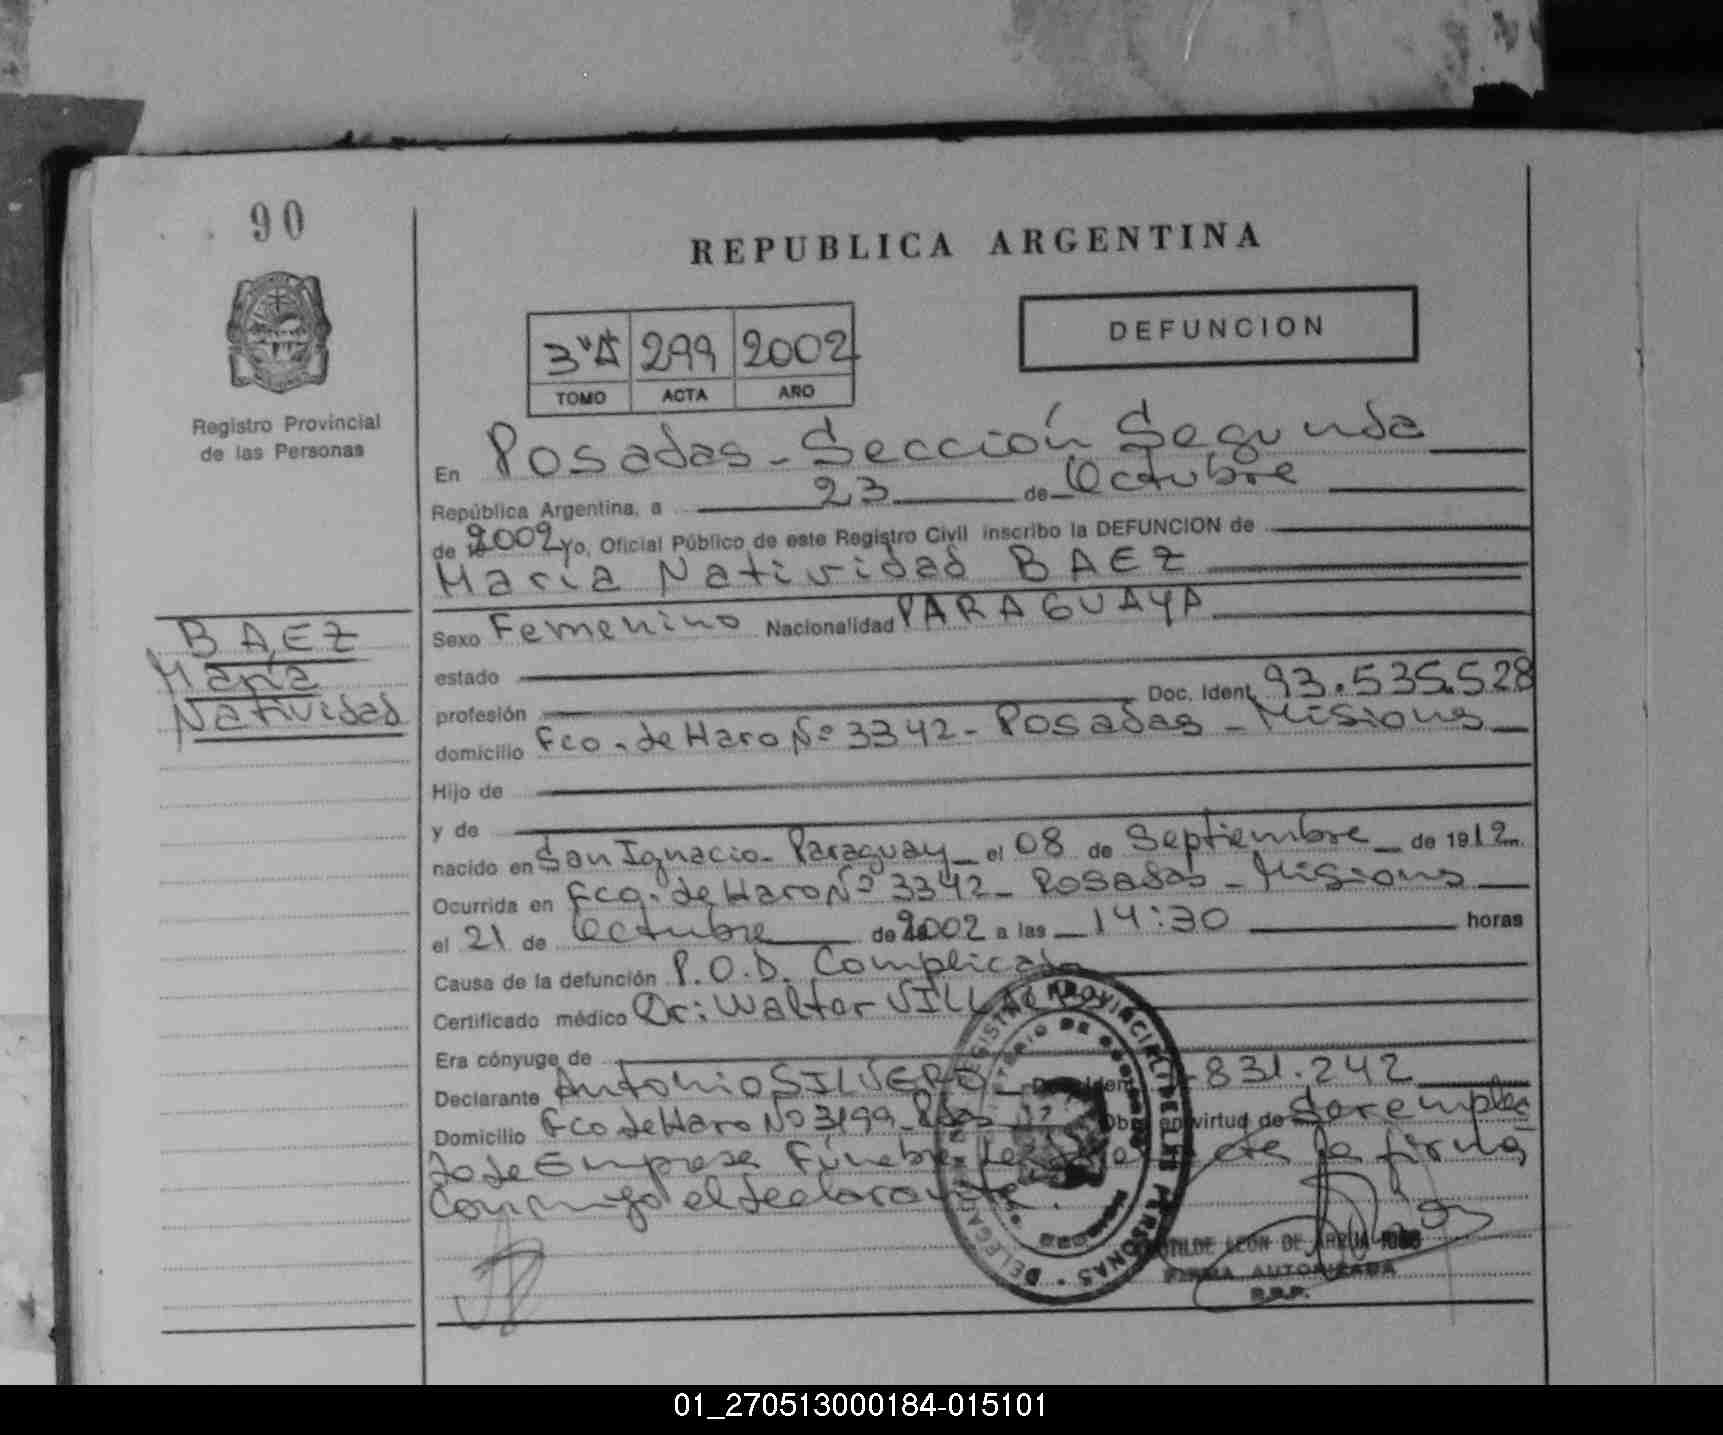 90
REPUBLICA ARGENTINA
Registro Provincial
de las Personas
3ra 299 2002
TOMO ACTA AÑO
DEFUNCION
En Posadas - Sección Segunda
República Argentina, a 23 de Octubre
de 2002 yo, Oficial Público de este Registro Civil inscribo la DEFUNCION de
María Natividad BAEZ
BAEZ
María
Natividad
Sexo Femenino Nacionalidad PARAGUAYA
estado
profesión Doc. Ident. 93.535.528
domicilio Fco. de Haro Nº 3342 - Posadas - Misiones
Hijo de
y de
nacido en San Ignacio - Paraguay el 08 de Septiembre de 1912
Ocurrida en Fco. de Haro Nº 3342 - Posadas - Misiones
el 21 de Octubre de 2002 a las 14:30 horas
Causa de la defunción P.O.D. Complicada
Certificado médico Dr: Walter
Era cónyuge de
Declarante Antonio SILVERO 831.242
Domicilio Fco de Haro Nº 3199 - Pdas Obra en virtud de Ser emplea
do de Empresa Fúnebre la firma
conmigo el declarante.
LEON DE
FIRMA AUTORIZADA
R.P.P.
01_270513000184-015101